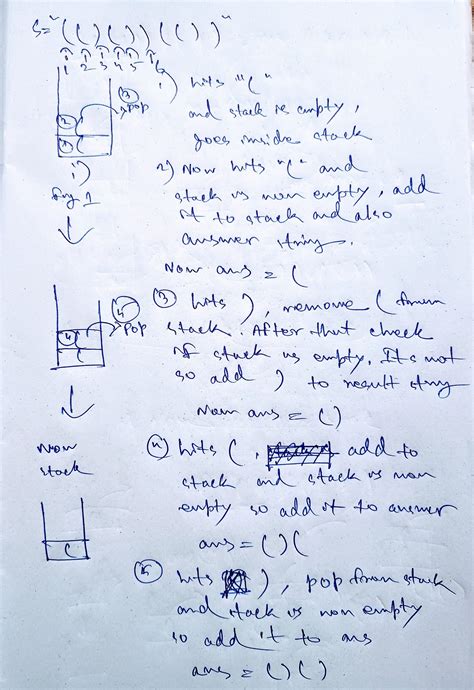 S="(()())(())"
1 2 3 4 5 6
1) hits "("
and stack is empty,
goes inside stack
③ pop
② (
① (
fig 1
2) Now hits "(" and
stack is non empty, add
it to stack and also
answer string.
Now ans = (
③ hits ), remove ( from
stack. After that check
if stack is empty. It's not
so add ) to result string
Now ans = ()
⑤ pop
④ (
(
Now
stack
(
④ hits (, add to
stack and stack is non
empty so add it to answer
ans = ()(
⑤ hits ), pop from stack
and stack is non empty
so add it to ans
ans = ()()